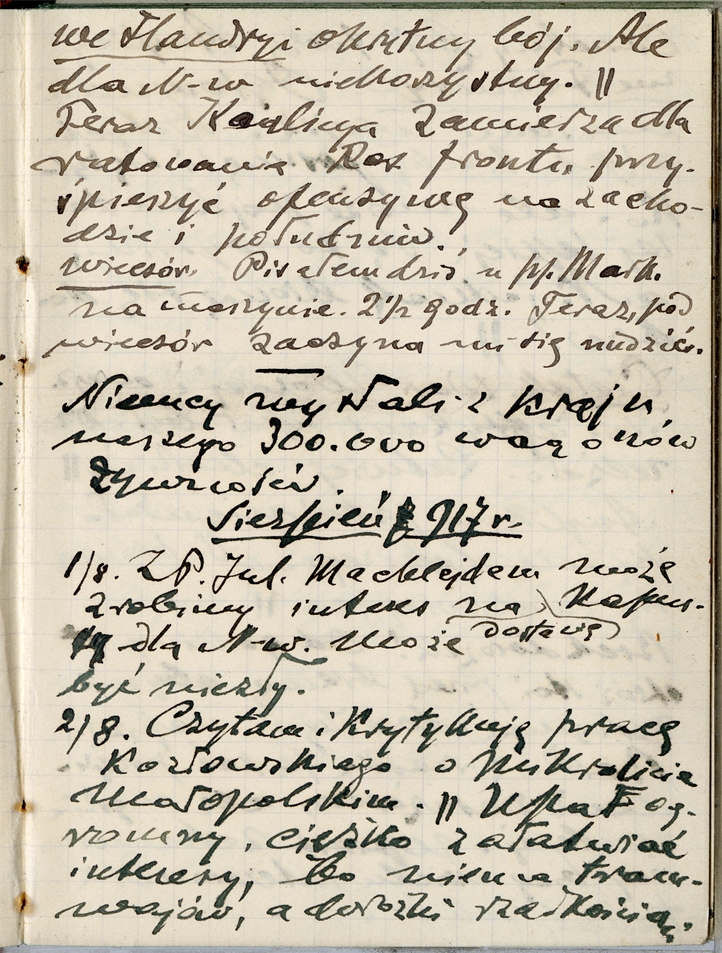 we Flandryi okrutny bój. Ale
dla N-w niekorzystny. ||
Teraz Koalicya zamierza dla
ratowania Ros frontu, przy-
śpieszyć ofensywę na zacho-
dzie i południu.
wieczór. Pisałem dziś u pp. Mark.
na maszynie. 2 1/2 godz. Teraz, pod
wieczór zaczyna mi się nudzić.
Niemcy wysłali z kraju
naszego 300.000 wagonów
żywności.
Sierpień 917 r.
1/8. Z P. Jul. Machlejdem może
zrobimy interes na kapus-
tę dla N-w. Może dostawę
być niezły.
2/8. Czytam i krytykuję pracę
Kozłowskiego o Mikrolicie
małopolskim. || Upał og-
romny, ciężko załatwiać
interesy, bo niema tram-
wajów, a dorożki rzadkością.